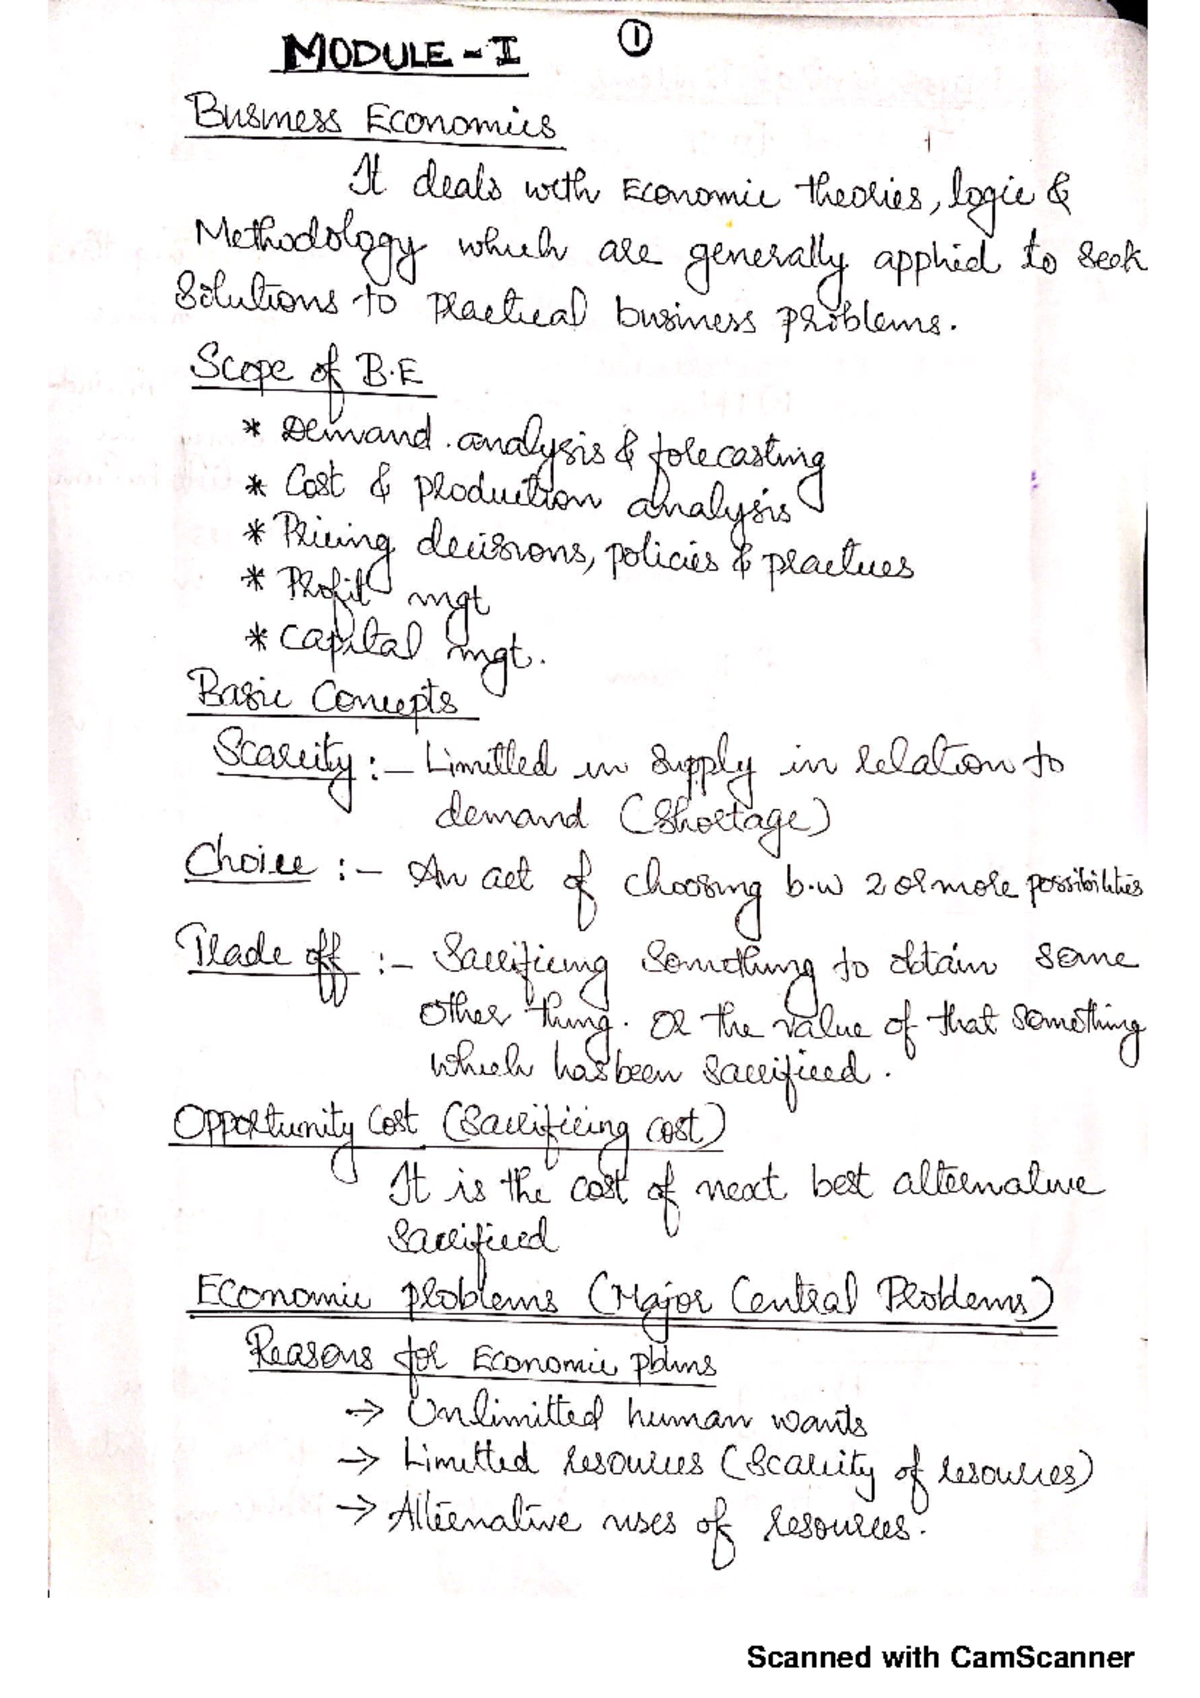 MODULE - I
1
Business Economics
It deals with Economic theories, logic &
Methodology which are generally applied to seek
Solutions to practical business problems.
Scope of B.E
* Demand analysis & forecasting
* Cost & production analysis
* Pricing decisions, policies & practices
* Profit mgt
* Capital mgt.
Basic Concepts
Scarcity :- Limitted in supply in relation to
demand (Shortage)
Choice :- An act of choosing b.w 2 or more possibilities
Trade off :- Sacrificing Something to obtain some
other thing. Or the value of that something
which has been sacrificed.
Opportunity Cost (Sacrificing cost)
It is the cost of next best alternative
Sacrificed
Economic problems (Major Central Problems)
Reasons for Economic pblms
→ Unlimitted human wants
→ Limitted resources (Scarcity of resources)
→ Alternative uses of resources.
Scanned with CamScanner